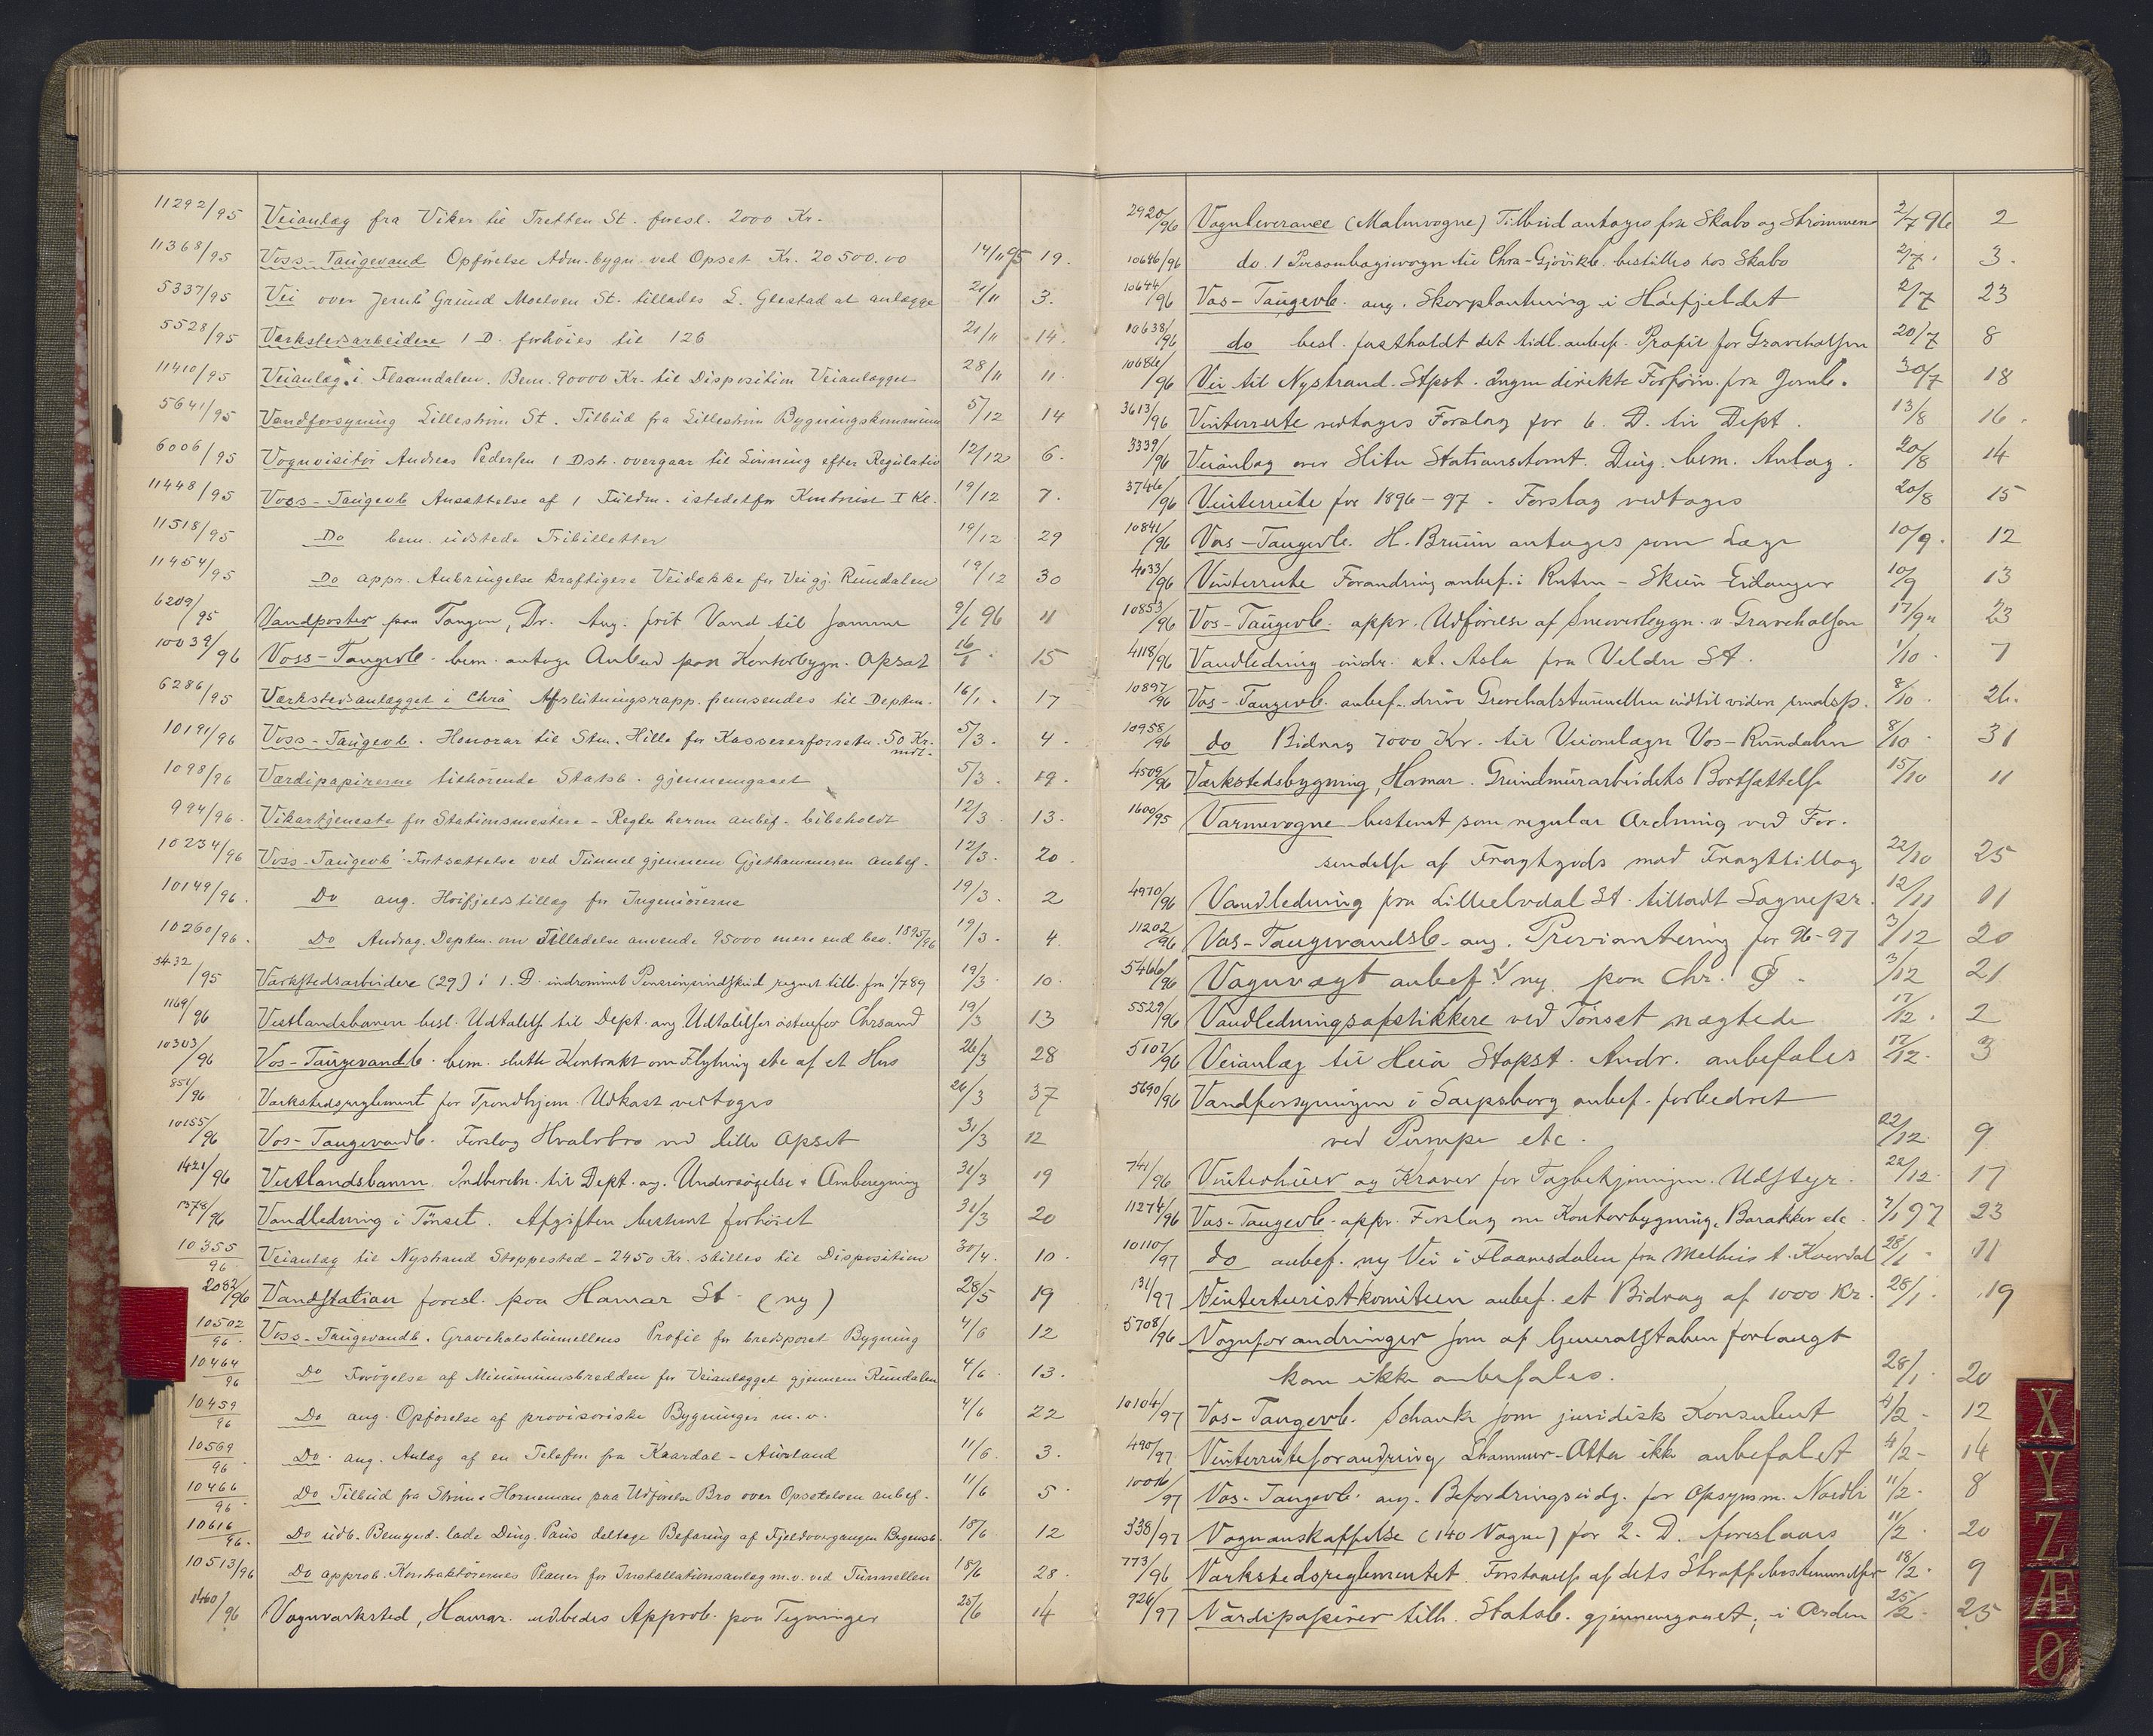 11292/95 Veianlæg fra Viker til Tretten St. foresl. 2000 Kr.
11368/95 Voss-Taugevand Opførelse Adm.bygn. ved Opset Kr. 20500.00 14/11 95 19.
5337/95 Vei over Jernb Grund Moelven St. tillades L. Glestad at anlægge 21/11 3.
5528/95 Værkstedsarbeidere 1 D. forhöies til 126 21/11 14.
11410/95 Veianlæg i Flaamdalen. Bem. 90000 Kr. til Disposition Veianlægget 28/11 11.
5641/95 Vandforsyning Lillestrøm St. Tilbud fra Lillestrøm Bygningskommune 5/12 14
6006/95 Vognvisitør Andreas Pedersen 1 Dstr. overgaar til Lønning efter Regulativ 12/12 6.
11448/95 Voss-Taugevb Ansættelse af 1 Fuldm. istedetfor Kontorist I Kl. 19/12 7.
11518/95 Do bem. udstede Fribilletter 19/12 29
11454/95 Do appr. Anbringelse kraftigere Veidække for Veigj. Rundalen 19/12 30
6209/95 Vandposter paa Tangen, Dr. Ang. frit Vand til samme 9/1 96 11
10039/96 Voss-Taugevb. bem. antage Anbud paa Kontorbygn. Opsat 16/1 15
6286/95 Værkstedsanlægget i Chra Afslutningsrapp. fremsendes til Deptm. 16/1. 17
10191/96 Voss-Taugevb. Honorar til Stm. Hille for Kassererforretn. 50 Kr. mdl. 5/3. 4.
1098/96 Værdipapirerne tilhørende Statsb. gjennemgaaet 5/3. 19.
994/96. Vikartjeneste for Stationsmestere - Regler herom anbef. bibeholdt 12/3 13.
10234/96 Voss-Taugevb. Fortsættelse ved Tunnel gjennem Gjethammeren anbef. 12/3. 20
10149/96. Do ang. Høifjeldstillæg for Ingeniørerne 19/3. 2
10260/96. Do Andrag. Deptm. om Tilladelse anvende 95000 mere end bev. 1895/96 19/3. 4
5432/95 Værkstedsarbeidere (29) i 1. D. indrømmet Pensionsindskud regnet tilb. fra 1/7 89 19/3 10.
1169/96 Vestlandsbanen besl. Udtalelse til Dept. ang. Udtalelser østenfor Chrsand 19/3 13
10303/96 Vos-Taugevandb. bem. slutte Kontrakt om Flytning etc af et Hus 26/3 28
851/96 Værkstedsreglement for Trondhjem. Udkast vedtoges 26/3 37
10155/96 Vos-Taugevandb. Forslag Hvalvbro ved lille Opset 31/3 12
1421/96 Vestlandsbanen. Indberetn. til Dept. ang. Undersøgelse & Omberegning 31/3 19
1378/96 Vandledning i Tönset. Afgiften bestemt forhöiet 31/3 20
10355/96 Veianlæg til Nystrand Stoppested - 2450 Kr. stilles til Disposition 30/4. 10.
2082/96 Vandstation foresl. paa Hamar St. (ny) 28/5 19
10502/96. Voss-Taugevandb. Gravehalstunnellens Profil for bredsporet Bygning 4/6 12
10464/96 Do Forøgelse af Minimumsbredden for Veianlægget gjennem Rundalen 4/6. 13.
10459/96 Do ang. Opførelse af provisoriske Bygninger m.v. 4/6 22
10569/96 Do. ang. Anlæg af en Telefon fra Kaardal - Aurland 11/6 3.
10466/96. Do Tilbud fra Strøm & Horneman paa Udførelse Bro over Opsetelven anbef. 11/6 5
10616/96. Do udb. Bemynd. lade Ding. Paus deltage Befaring af Fjeldovergangen Bergensb. 18/6 12
10513/96 Do approb. Kontraktørernes Planer for Installationsanlæg m.v. ved Tunnellen 18/6 28.
1460/96 Vognværksted, Hamar. udbedes Approb. paa Tegninger 25/6 14
2920/96 Vognleverance (Malmvogne) Tilbud antages fra Skabo og Strømmen 2/7 96 2
10646/96 do. 1 Personbagivogn til Chra-Gjøvikb. bestilles hos Skabo 2/7. 3.
10644/96 Vos-Taugevb. ang. Skovplantning i Höifjeldet 2/7 23
10638/96 do besl. fastholdt det tidl. anbef. Profil for Gravehalsen 20/7 8
10686/96 Vei til Nystrand. Stpst. Ingen direkte Forbin. fra Jernb. 30/7 18
3613/96 Vinterrute vedtages Forslag for 6. D. til Dept. 13/8 16.
3339/96 Veianlæg over Slitu Stationstomt. Ding. bem. Anlæg. 20/8 14
3746/96 Vinterrute for 1896-97. Forslag vedtages 20/8 15
10841/96 Vos-Taugevb. H. Bruun antages som Læge 10/9. 12
4033/96 Vinterrute Forandring anbef. i Ruten - Skien Eidanger 10/9 13
10853/96 Vos-Taugevb. appr. Udförelse af Sneoverbygn. v Gravehalsen 17/9 23
4118/96 Vandledning indr. at. Asla fra Veldre St. 1/10 7
10897/96 Vos-Taugevb. anbef. drive Gravehalstunnellen indtil videre 8/10. 26.
10958/96 do Bidrag 7000 Kr. til Veianlægn Vos-Rundalen 8/10 31
4509/96 Værkstedsbygning, Hamar. Grundmurarbeidets Bortsættelse 15/10 11
1600/95 Varmevogne bestemt som regulær Ordning ved For-
sendelse af Fragtgods mod Fragttillæg 22/10 25
4970/96 Vandledning fra Lilleelvdal St. tilladt Sagnepr. 12/11 11
11202/96 Vos-Taugevandsb. ang. Proviantering for 96-97 3/12 20
5466/96 Vognvægt anbef. 1 ny paa Chr. Ø. 3/12 21
5529/96 Vandledningsafstikkere ved Tönset nægtede 17/12. 2
5107/96 Veianlæg til Heia Stopst. Andr. anbefales 17/12. 3
5690/96 Vandforsyningen i Sarpsborg anbef. forbedret
ved Pumpe etc. 22/12. 9
741/96 Vinterhuer og Kraver for Togbetjeningen. Udstyr. 22/12. 17
11274/96 Vos-Taugevb. appr. Forslag om Kontorbygning, Barakker etc. 7/1 97 23
10110/97 do anbef. ny Vei i Flaamsdalen fra Melhus t. Kaardal 28/1 11
131/97 Vinterturistkomiteen anbef. et Bidrag af 1000 Kr. 28/1. 19
5708/96 Vognforandringer som af Generalstaben forlangt
kan ikke anbefales. 28/1. 20
10104/97 Vos-Taugevb. Schanke som juridisk Konsulent 4/2 - 12
490/97 Vinterruteforandring Lhammer-Otta ikke anbefalet 4/2 - 14
10016/97 Vos-Taugevb. ang. Befordringsudg. for Opsynsm. Nordli 11/2. 8
338/97 Vognanskaffelse (140 Vogne) for 2. D. foreslaaes 11/2. 20
773/96 Værkstedsreglementet. Forstaaelse af dets Straffebestemmelser 18/2. 9
926/97 Værdipapirer tilh. Statsb. gjennemgaaet, i Orden 25/2. 25
X
Y
Z
Æ
Ø